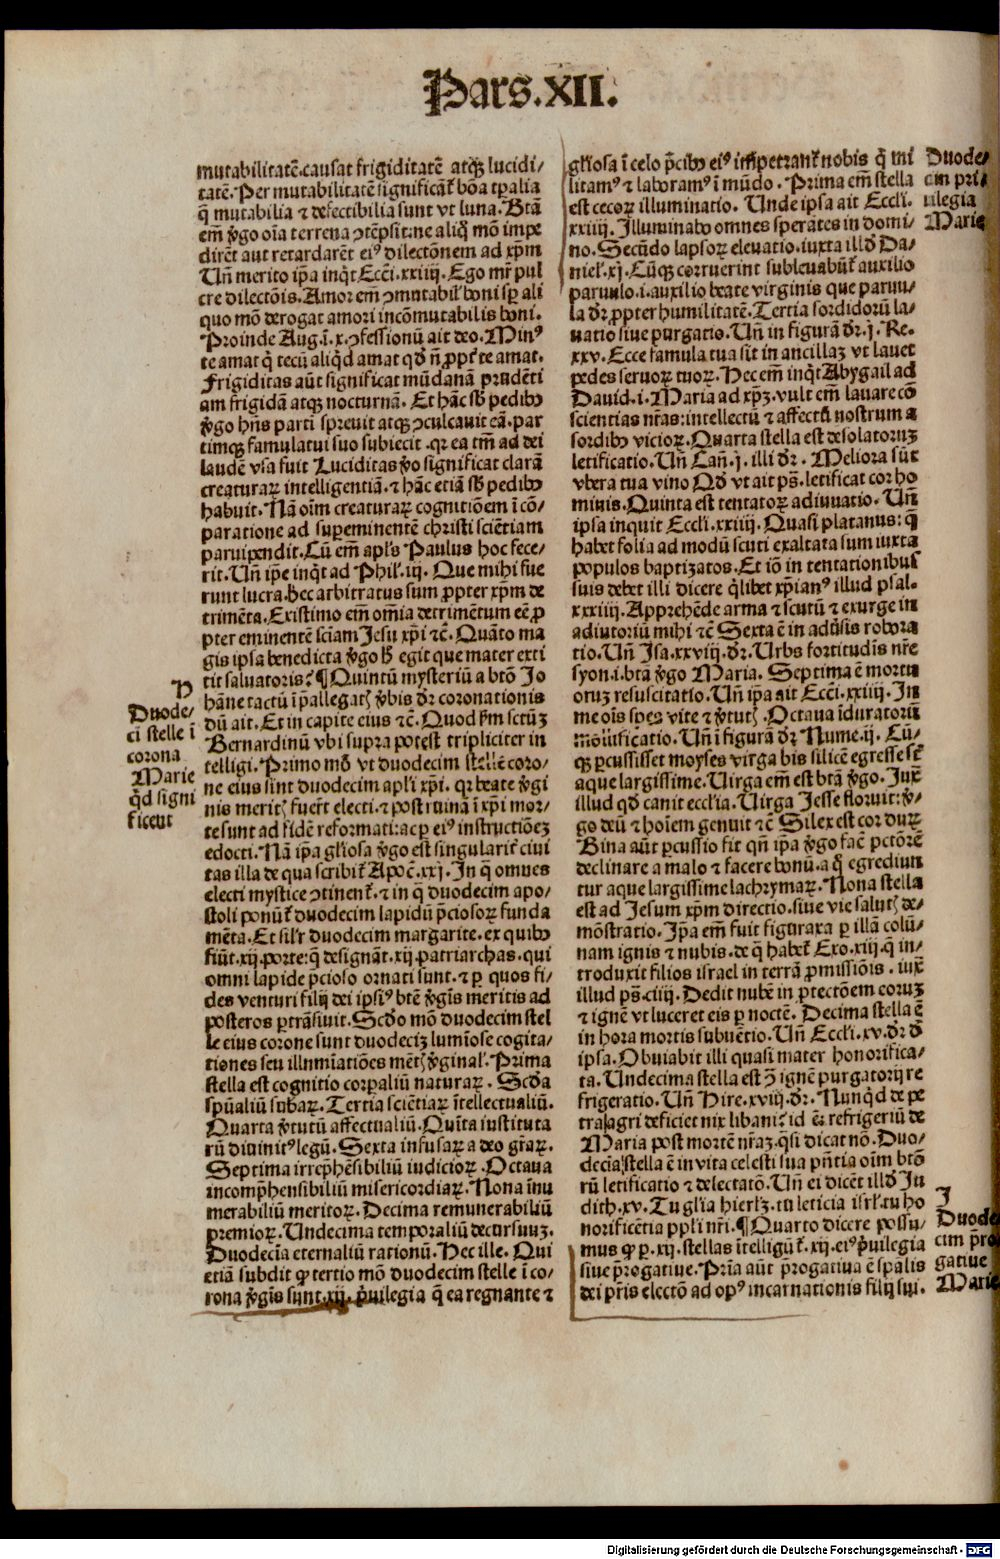 Pars.XII.
mutabilitatē.causat frigiditatē atqȝ lucidi⸗
tatē. Per mutabilitatē significāt̄ bōa tp̄alia
q̄ mutabilia ⁊ defectibilia sunt vt luna. Btā
em̄ v̄go oīa terrena ꝯtēpsit: ne aliq̊ mō impe
dirēt aut retardarēt eiꝰ dilectōnem ad xp̄m
Un̄ merito ip̄a inq̇t Ecc̄i.xxiiij. Ego mr̄ pul
cre dilectōis. Amor em̄ ꝯmutabil̓ boni sp̄ ali
quo mō derogat amori incōmutabilis boni.
Proinde Aug.ī.x.ꝯfessionū ait deo. Minꝰ
te amat q̇ tecū aliq̇d amat qd̓ nō ꝓpt̓ te amat.
Frigiditas aūt significat mūdanā prudēti
am frigidā atqȝ nocturnā. Et hāc sb̓ pedibꝰ
v̄go hn̄s partī spreuit atqȝ ꝯculcauit eā. par
timqȝ famulatui suo subiecit. qr ea tm̄ ad dei
laudē vsa fuit Luciditas v̄o significat clarā
creaturaꝝ intelligentiā. ⁊ hāc etiā sb̓ pedibꝰ
habuit. Nā oīm creaturaꝝ cognitiōem ī cō⸗
paratione ad supeminentē christi sciētiam
paruipendit. Cū em̄ apl̓s Paulus hoc fece⸗
rit. Un̄ ip̄e inq̇t ad Phil̓.iij. Que mihi fue
runt lucra.hec arbitratus sum ꝓpter xp̄m de
trimēta. Existimo em̄ om̄ia detrimētum eē ꝓ
pter eminentē sciam Jesu xp̄i ⁊c̄. Quāto ma
gis ipsa benedicta v̄go h̓ egit que mater exti
tit saluatoris? ¶Quintū mysteriū a btō Jo
hāne tactū ī p̄allegatꝭ v̄bis dr̄ coronationis
dū ait. Et in capite eius ⁊c̄. Quod ẜm sctūȝ
Bernardinū vbi supra potest tripliciter in
telligi. Primo mō vt duodecim stelle coro⸗
ne eius sint duodecim apl̓i xp̄i. qr beate v̄gi
nis meritꝭ fuer̄t electi. ⁊ post ruinā ī xp̄i mor⸗
te sunt ad fidē reformati: ac ꝑ eiꝰ instructiōeȝ
edocti. Nā ip̄a gl̓iosa v̄go est singularit̓ ciui
tas illa de qua scribit̓ Apoc̄.xxj. In q̄ omnes
electi mystice ꝯtinent̓. ⁊ in q̄ duodecim apo⸗
stoli ponūt̓ duodecim lapidū p̄ciosoꝝ funda
mēta. Et sil̓r duodecim margarite. ex quibꝰ
fiūt.xij.porte: q̄ designāt.xij.patriarchas. qui
omni lapide p̄cioso ornati sunt. ⁊ ꝑ quos fi⸗
des venturi filij dei ipsiꝰ btē v̄gīs meritis ad
posteros ꝑtrāsiuit. Scd̓o mō duodecim stel
le eius corone sunt duodeciȝ lumīose cogita⸗
tiones seu illumīatiōes mētꝭ v̄ginal̓. Prima
stella est cognitio corpaliū naturaꝝ. Scd̓a
sp̄ualiū subaꝝ. Tertia sciētiaꝝ ītellectualiū.
Quarta v̄tutū affectualiū. Quīta instituta
rū diuinitꝰlegū. Sexta infusaꝝ a deo gr̄aꝝ.
Septima irrep̄hēsibiliū iudicioꝝ. Octaua
incomp̄hensibiliū misericordiaꝝ. Nona īnu
merabiliū meritoꝝ. Decima remunerabiliū
premioꝝ. Undecima temporaliū decursuuȝ.
Duodecīa eternaliū rationū. Hec ille. Qui
etiā subdit ꝙ tertio mō duodecim stelle ī co⸗
rona v̄gīs sunt.xij. p̄uilegia q̄ ea regnante ⁊
Duode⸗
ci stelle ī
corona
Marie
q̇d signi
ficent
gl̓iosa ī celo p̄cibꝰ eiꝰ impetrant̓ nobis q̇ mi
litamꝰ ⁊ laboramꝰ ī mūdo. Prima em̄ stella
est cecoꝝ illuminatio. Unde ipsa ait Eccl̓i.
xxiiij. Illuminabo omnes sperātes in domi⸗
no. Secūdo lapsoꝝ eleuatio. iuxta illd̓ Da⸗
niel̓.xj. Cūqȝ corruerint subleuabūt̓ auxilio
paruulo.i.auxilio beate virginis que paruu⸗
la dr̄ ꝓpter humilitatē. Tertia sordidorū la⸗
uatio siue purgatio. Un̄ in figurā dr̄.j. Re.
xxv. Ecce famula tua sit in ancillaȝ vt lauet
pedes seruoꝝ tuoꝝ. Hec em̄ inq̇t Abygail ad
Dauid.i. Maria ad xp̄ȝ. vult em̄ lauare cō
scientias nr̄as: intellectū ⁊ affectū nostrum a
sordibꝰ vicioꝝ. Quarta stella est desolatoruȝ
letificatio. Un̄ Can̄.j. illi dr̄. Meliora sūt
vbera tua vino Qd̓ vt ait ps̄. letificat cor ho
minis. Quinta est tentatoꝝ adiuuatio. Un̄
ipsa inquit Eccl̓i.xxiiij. Quasi platanus: q̄
habet folia ad modū scuti exaltata sum iuxta
populos baptizatos. Et iō in tentationibus
suis debet illi dicere q̇libet xp̄ianꝰ illud psal⸗
xxxiiij. Apprehēde arma ⁊ scutū ⁊ exurge in
adiutoriū mihi ⁊c̄ Sexta ē in adūsis robora
tio. Un̄ Isa.xxviij. dr̄. Urbs fortitudīs nr̄e
syon.i.btā v̄go Maria. Septima ē mortu
oruȝ resuscitatio. Un̄ ip̄a ait Ecc̄i.xxiiij. In
me oīs spes vite ⁊ v̄tutꝭ. Octaua īduratorū
mollificatio. Un̄ ī figurā dr̄ Nume.ij. Cū⸗
qȝ ꝑcussisset moyses virga bis silicē egresse st̄
aque largissime. Uirga em̄ est btā v̄go. Juxͣ
illud qd̓ canit eccl̓ia. Uirga Jesse floruit: v̄⸗
go deū ⁊ hoīem genuit ⁊c̄ Silex est cor duꝝ.
Bina aūt ꝑcussio fit qn̄ ip̄a v̄go fac̄ pctōrē
declinare a malo ⁊ facere bonū. a q̊ egrediun
tur aque largissime lachrymaꝝ. Nona stella
est ad Jesum xp̄m directio. siue vie salutꝭ de⸗
mōstratio. Ip̄a em̄ fuit figuraxa ꝑ illā colū⸗
nam ignis ⁊ nubis. de q̄ habet̓ Exo.xiij. q̄ in⸗
troduxit filios israel in terrā ꝓmissiōis. iuxͣ
illud ps̄.ciiij. Dedit nubē in ꝓtectōem coruȝ
⁊ ignē vt luceret eis ꝑ noctē. Decima stella ē
in hora mortis subuētio. Un̄ Eccl̓i.xv. dr̄ d̓
ipsa. Obuiabit illi quasi mater honorifica⸗
ta. Undecima stella est ꝯ̄ ignē purgatorij re
frigeratio. Un̄ Hire.xviij. dr̄. Nunq̇d de pe
tra agri deficiet nix libani? id ē refrigeriū de
Maria post mortē nr̄aȝ. q̇si dicat nō. Duo⸗
decīa stella ē in vita celesti sua p̄ntia oīm btō
rū letificatio ⁊ delectatō. Un̄ ei dicēt illd̓ Ju
dith.xv. Tu gl̓ia hierl̓ȝ. tu leticia isrl̓. tu ho
norificētia ppl̓i nr̄i. ¶Quarto dicere possu⸗
mus ꝙ ꝑ.xij. stellas ītelligūt̓.xij. eiꝰ p̄uilegia
siue p̄rogatiue. Prīa aūt p̄rogatiua ē spālis
dei pr̄is electō ad opꝰ incarnationis filij sui.
Duode⸗
cim pri⸗
uilegia
Marie
J
Duode
cim p̄ro
gatiue
Marie
Digitalisierung gefördert durch die Deutsche Forschungsgemeinschaft - DFG